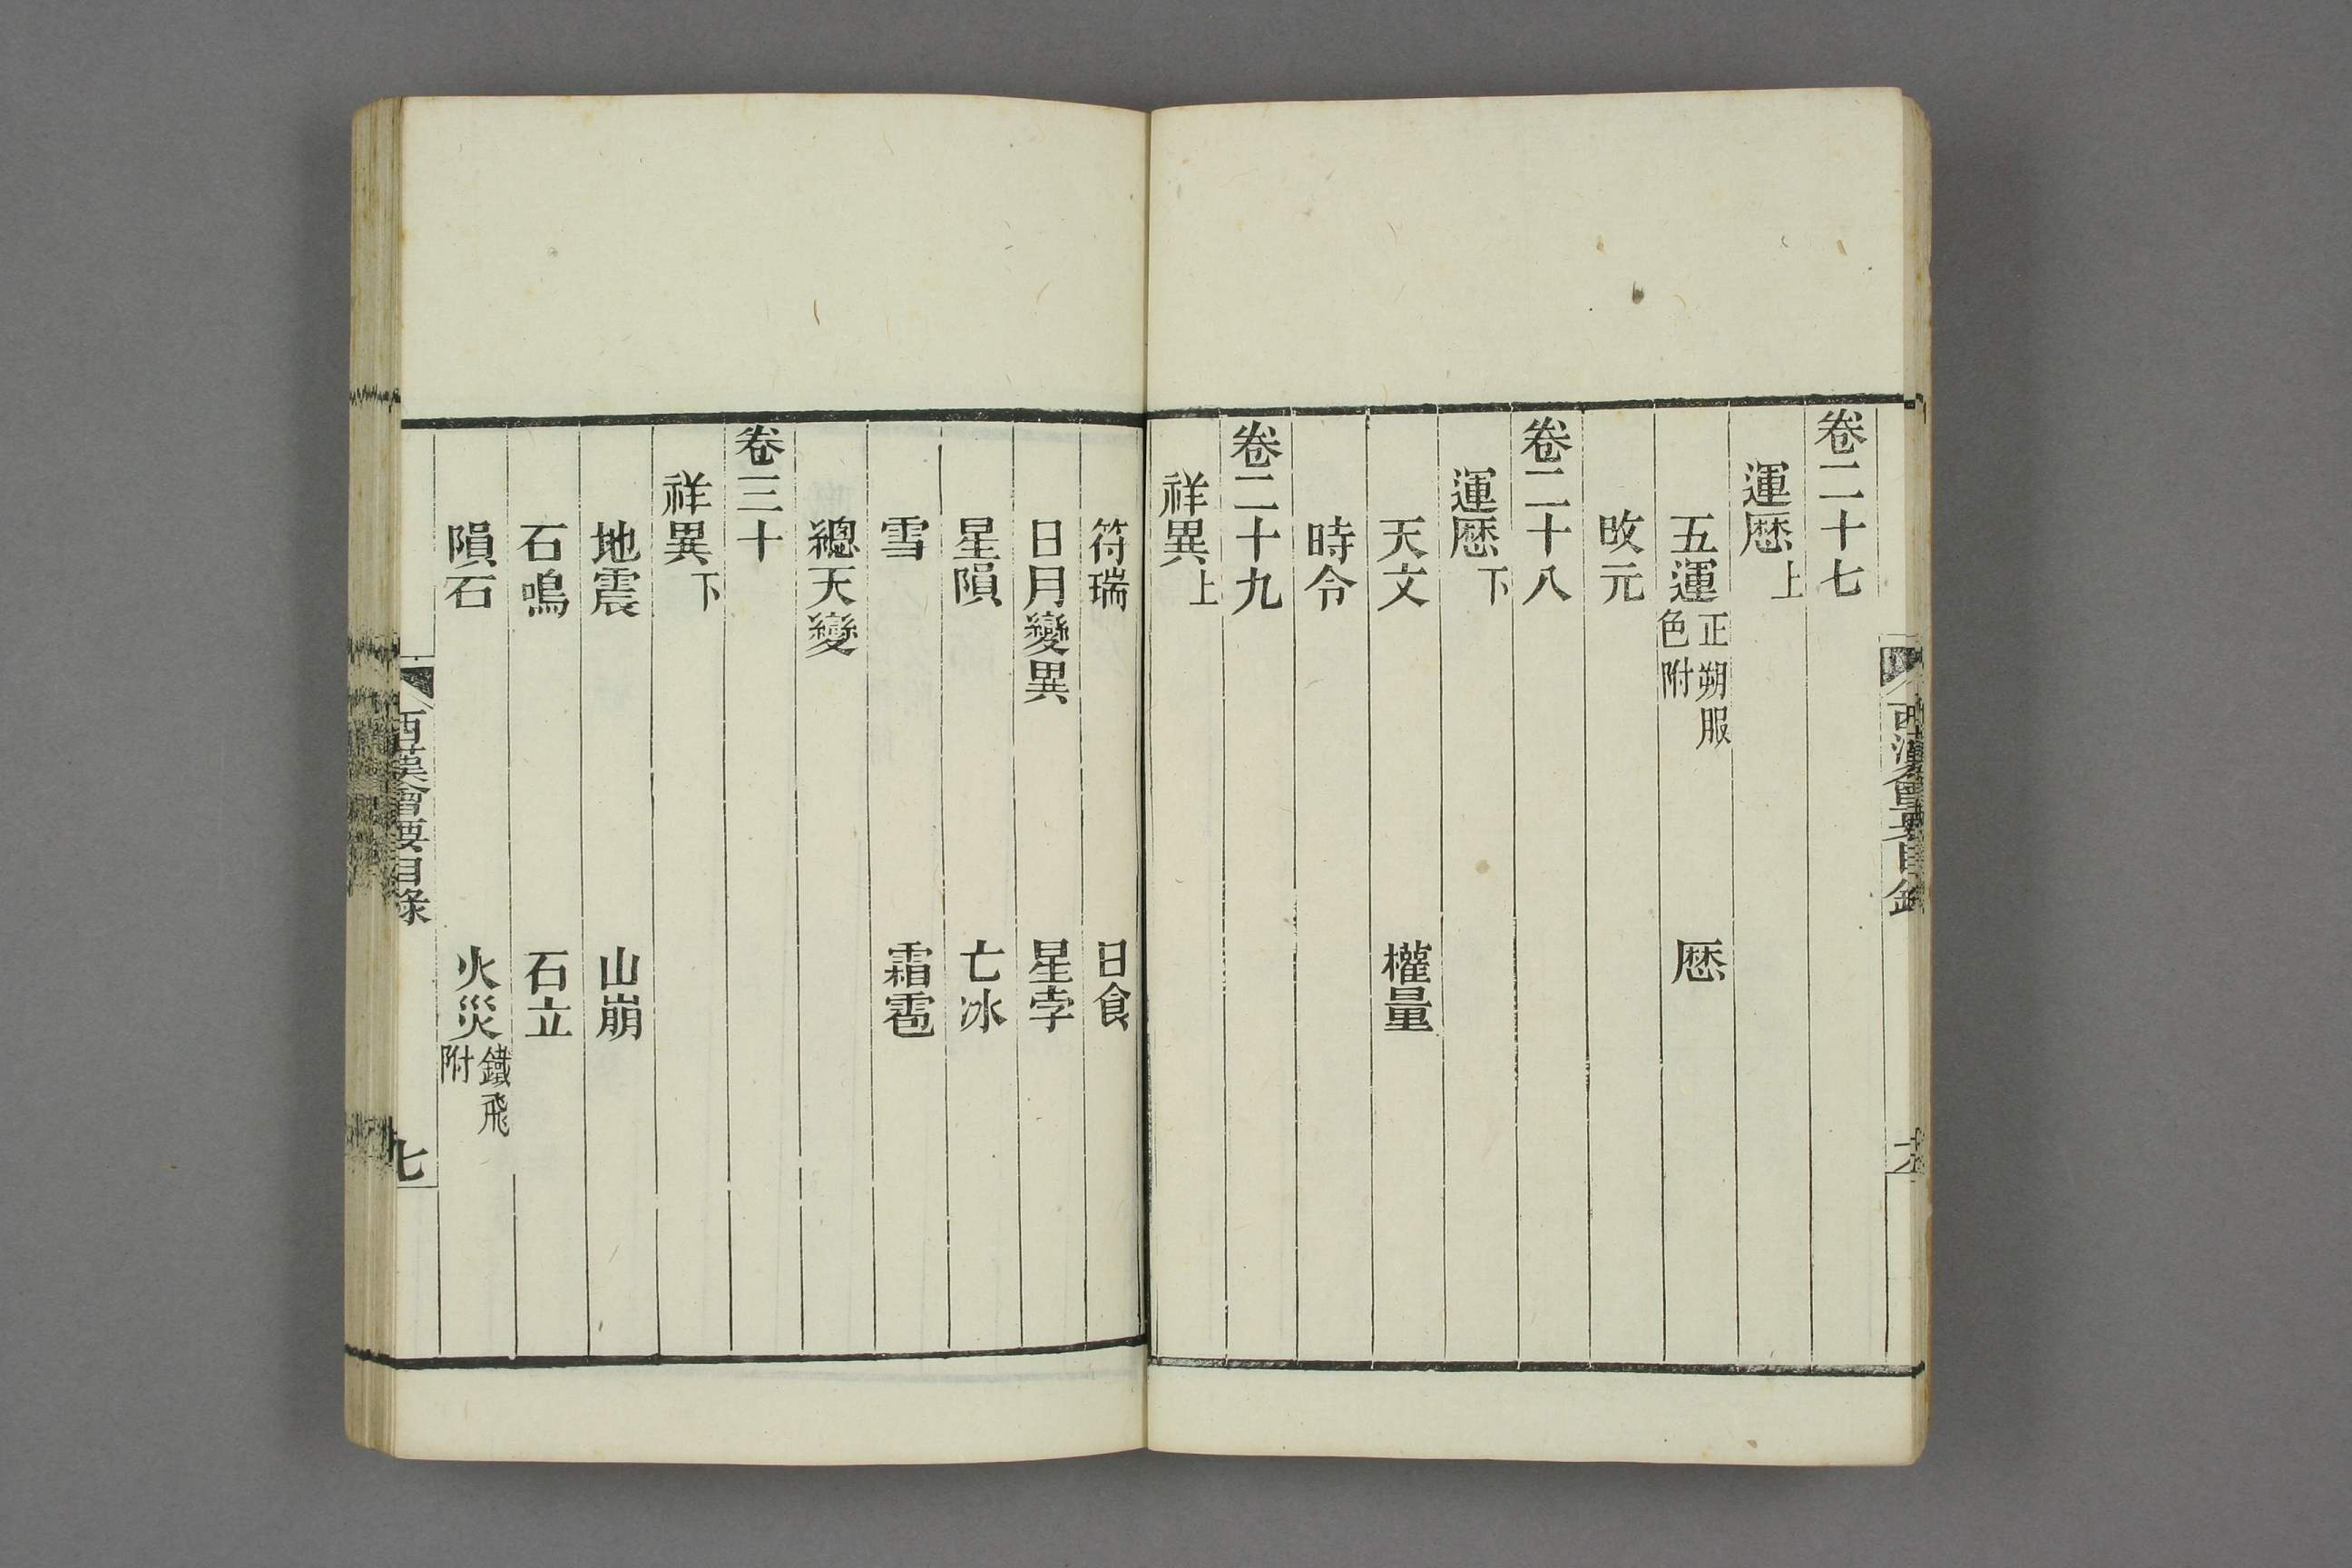 西漢會要目錄
卷二十七
運厯上
五運正朔服色附 厯
攺元
卷二十八
運厯下
天文 權量
時令
卷二十九
祥異上
符瑞 日食
日月變異 星孛
星隕 亡冰
雪 霜雹
總天變
卷三十
祥異下
地震 山崩
石鳴 石立
隕石 火災鐵飛附
西漢會要目錄
七